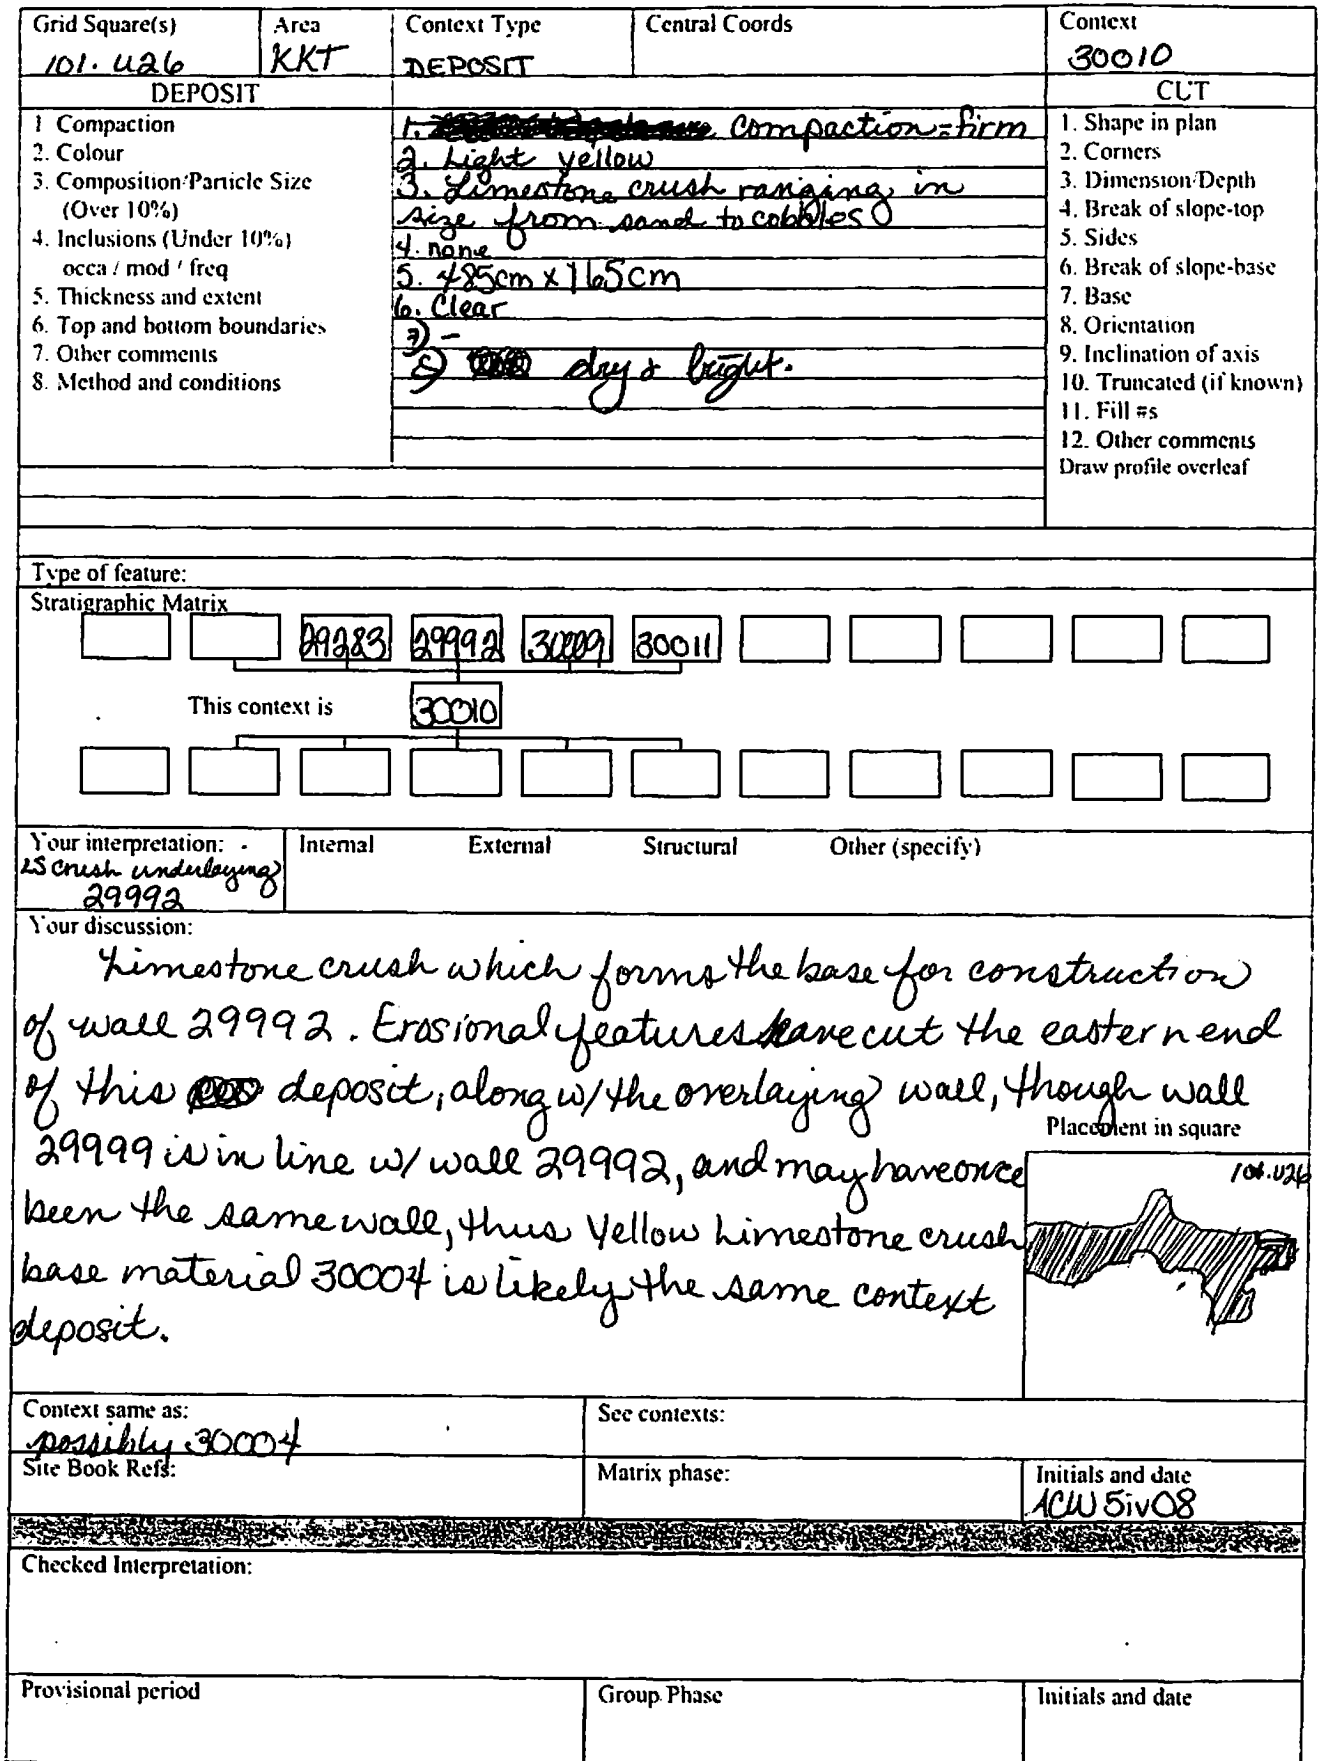 Grid Square(s) Area Context Type Central Coords Context
101. U26 KKT DEPOSIT 30010
DEPOSIT CUT
1 Compaction
2. Colour
3. Composition/Particle Size
(Over 10%)
4. Inclusions (Under 10%)
occa / mod / freq
5. Thickness and extent
6. Top and bottom boundaries
7. Other comments
8. Method and conditions
1. compaction=firm
2. Light yellow
3. Limestone crush ranging in
size from sand to cobbles
4. none
5. 485cm x 165cm
6. Clear
7) -
8) dry & bright.
1. Shape in plan
2. Corners
3. Dimension/Depth
4. Break of slope-top
5. Sides
6. Break of slope-base
7. Base
8. Orientation
9. Inclination of axis
10. Truncated (if known)
11. Fill #s
12. Other comments
Draw profile overleaf
Type of feature:
Stratigraphic Matrix
29283 29992 30009 30011
This context is 30010
Your interpretation: Internal External Structural Other (specify)
LS crush underlaying
29992
Your discussion:
Limestone crush which forms the base for construction
of wall 29992. Erosional features have cut the eastern end
of this deposit, along w/ the overlaying wall, though wall
29999 is in line w/ wall 29992, and may have once
been the same wall, thus Yellow Limestone crush
base material 30004 is likely the same context
deposit.
Placement in square
101.U26
Context same as: See contexts:
possibly 30004
Site Book Refs: Matrix phase: Initials and date
ACW 5iv08
Checked Interpretation:
Provisional period Group Phase Initials and date